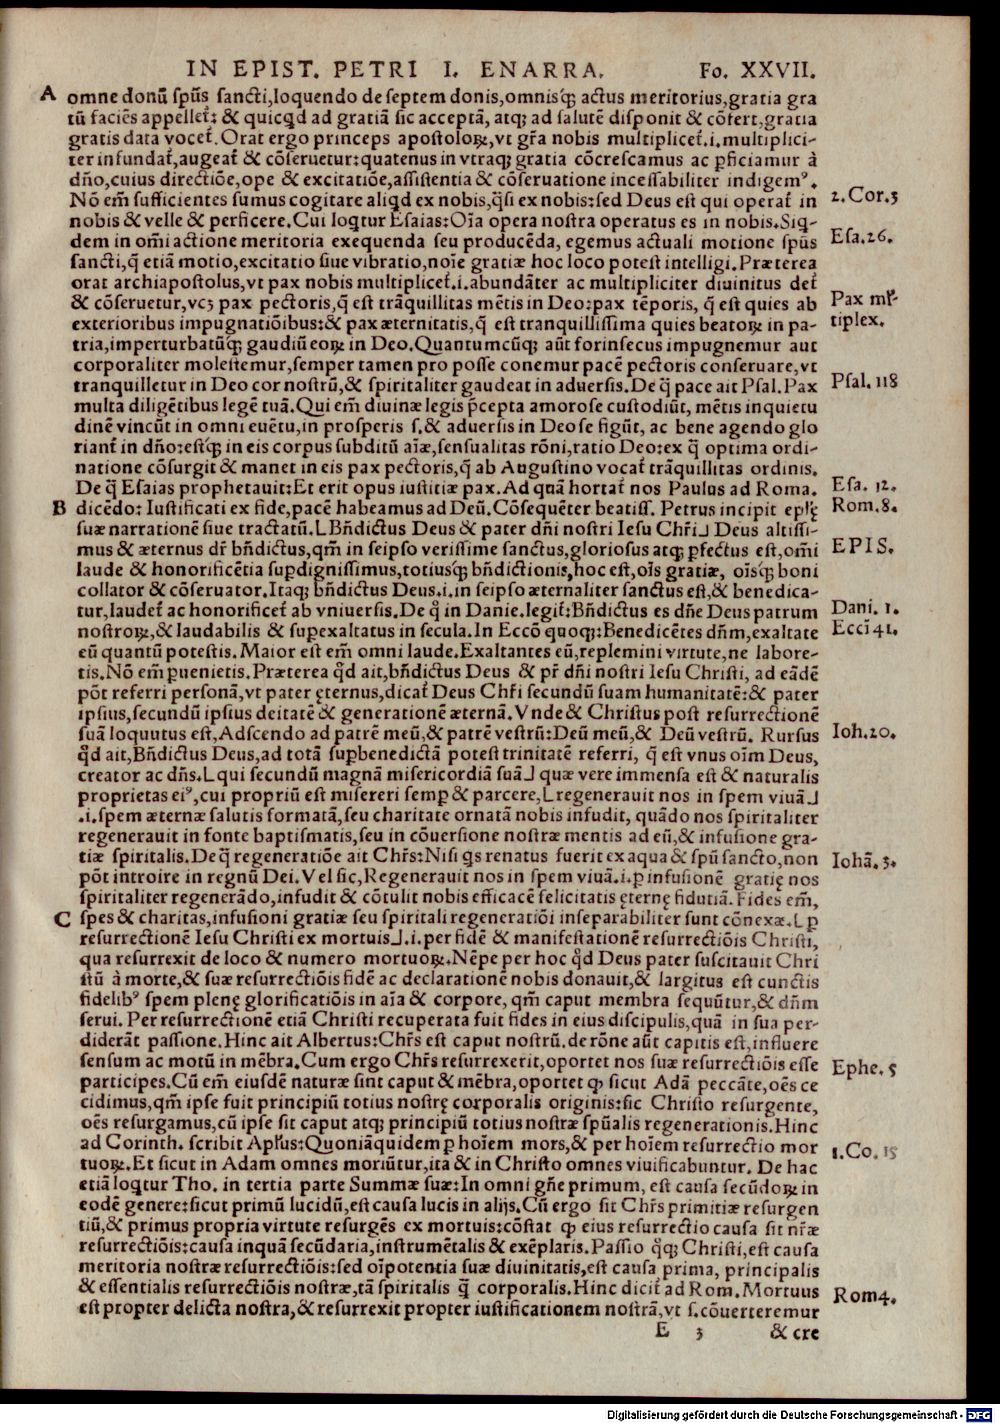 IN EPIST. PETRI I. ENARRA. Fo. XXVII.
A omne donū spūs sancti,loquendo de septem donis,omnisq́; actus meritorius,gratia gra
tū faciēs appellet̃: & quicqd ad gratiā sic acceptā, atq; ad salutē disponit & cōfert,gratia
gratis data vocet̃. Orat ergo princeps apostoloꝝ,vt gr̃a nobis multiplicet̃.i.multiplici-
ter infundat̃,augeat̃ & cōseruetur:quatenus in vtraq; gratia cōcrescamus ac ꝑficiamur à
dño,cuius directiōe,ope & excitatiōe,assistentia & cōseruatione incessabiliter indigemꝰ.
Nō em̃ sufficientes sumus cogitare aliqd ex nobis,q̃si ex nobis:sed Deus est qui operat̃ in
2.Cor.3
nobis & velle & perficere. Cui loqtur Esaias:Oĩa opera nostra operatus es in nobis.Siq-
dem in om̃i actione meritoria exequenda seu producēda, egemus actuali motione spũs
Esa.26.
sancti,q̃ etiā motio,excitatio siue vibratio,noĩe gratiæ hoc loco potest intelligi.Præterea
orat archiapostolus,vt pax nobis multiplicet̃.i.abundāter ac multipliciter diuinitus det̃
& cōseruetur,vcꝫ pax pectoris,q̃ est trāquillitas mētis in Deo:pax tēporis, q̃ est quies ab
Pax ml̃-
exterioribus impugnatiōibus:& pax æternitatis,q̃ est tranquillissima quies beatoꝝ in pa-
tiplex.
tria,imperturbatūq́; gaudiū eoꝝ in Deo.Quantumcūq; aūt forinsecus impugnemur aut
corporaliter molestemur,semper tamen pro posse conemur pacē pectoris conseruare,vt
tranquilletur in Deo cor nostrū,& spiritaliter gaudeat in aduersis. De q̃ pace ait Psal.Pax
Psal.118
multa diligētibus legē tuā.Qui em̃ diuinæ legis p̃cepta amorose custodiūt, mētis inquietu
dinē vincūt in omni euētu,in prosperis s.& aduersis in Deo se figūt, ac bene agendo glo
riant̃ in dño:estq́; in eis corpus subditū aĩæ,sensualitas rõni,ratio Deo:ex q̃ optima ordi-
natione cōsurgit & manet in eis pax pectoris,q̃ ab Augustino vocat̃ trāquillitas ordinis.
De q̃ Esaias prophetauit:Et erit opus iustitiæ pax. Ad quā hortat̃ nos Paulus ad Roma.
Esa. 12.
B dicēdo: Iustificati ex fide,pacē habeamus ad Deū. Cōsequēter beatiss. Petrus incipit eplę
Rom.8.
suæ narrationē siue tractatū. L Bñdictus Deus & pater dñi nostri Iesu Chr̃i⅃ Deus altissi-
mus & æternus dr̃ bñdictus,qm̃ in seipso verissime sanctus,gloriosus atq; ꝑfectus est,om̃i
EPIS.
laude & honorificētia suꝑdignissimus,totiusq́; bñdictionis,hoc est,oĩs gratiæ, oĩsq́; boni
collator & cōseruator. Itaq; bñdictus Deus.i.in seipso æternaliter sanctus est,& benedica-
tur,laudet̃ ac honorificet̃ ab vniuersis. De q̃ in Danie. legit̃:Bñdictus es dñe Deus patrum
Dani. 1.
nostroꝝ,& laudabilis & suꝑexaltatus in secula. In Eccō quoq;:Benedicētes dñm,exaltate
Ecci 41.
eū quantū potestis. Maior est em̃ omni laude.Exaltantes eū,replemini virtute,ne labore-
tis. Nō em̃ ꝑuenietis. Præterea qd̃ ait,bñdictus Deus & pr̃ dñi nostri Iesu Christi, ad eādē
põt referri personā,vt pater ęternus,dicat̃ Deus Chr̃i secundū suam humanitatē:& pater
ipsius,secundū ipsius deitatē & generationē æternā. Vnde & Christus post resurrectionē
suā loquutus est,Adscendo ad patrē meū,& patrē vestrū:Deū meū,& Deū vestrū. Rursus
Ioh.20.
qd̃ ait,Bñdictus Deus,ad totā suꝑbenedictā potest trinitatē referri, q̃ est vnus oĩm Deus,
creator ac dñs. L qui secundū magnā misericordiā suā⅃ quæ vere immensa est & naturalis
proprietas eiꝰ,cui propriū est misereri semꝑ & parcere, L regenerauit nos in spem viuā⅃
.i.spem æternæ salutis formatā,seu charitate ornatā nobis infudit, quādo nos spiritaliter
regenerauit in fonte baptismatis,seu in cōuersione nostræ mentis ad eū,& infusione gra-
tiæ spiritalis. De q̃ regeneratiōe ait Chr̃s:Nisi qs renatus fuerit ex aqua & spū sancto,non
Iohā.3.
põt introire in regnū Dei. Vel sic, Regenerauit nos in spem viuā.i.ꝑ infusionē gratię nos
spiritaliter regenerādo,infudit & cōtulit nobis efficacē felicitatis ęternę fiduciā. Fides em̃,
C spes & charitas,infusioni gratiæ seu spiritali regeneratiōi inseparabiliter sunt cōnexæ. L ꝑ
resurrectionē Iesu Christi ex mortuis⅃.i.per fidē & manifestationē resurrectiōis Christi,
qua resurrexit de loco & numero mortuoꝝ.Nēpe per hoc qd̃ Deus pater suscitauit Chri
stū à morte,& suæ resurrectiōis fidē ac declarationē nobis donauit,& largitus est cunctis
fidelibꝰ spem plenę glorificatiōis in aĩa & corpore, qm̃ caput membra sequūtur,& dñm
serui. Per resurrectionē etiā Christi recuperata fuit fides in eius discipulis,quā in sua per-
diderāt passione. Hinc ait Albertus:Chr̃s est caput nostrū.de rōne aūt capitis est,influere
sensum ac motū in mēbra.Cum ergo Chr̃s resurrexerit,oportet nos suæ resurrectiōis esse
participes. Cū em̃ eiusdē naturæ sint caput & mēbra,oportet ꝙ sicut Adā peccāte,oēs ce
Ephe. 5
cidimus,qm̃ ipse fuit principiū totius nostrę corporalis originis:sic Christo resurgente,
oēs resurgamus,cū ipse sit caput atq; principiū totius nostræ spũalis regenerationis. Hinc
ad Corinth. scribit Apl̃us:Quoniāquidem ꝑ hoĩem mors,& per hoĩem resurrectio mor
1.Co. 15
tuoꝝ.Et sicut in Adam omnes moriūtur,ita & in Christo omnes viuificabuntur. De hac
etiā loqtur Tho. in tertia parte Summæ suæ:In omni gñe primum, est causa secūdoꝝ in
eodē genere:sicut primū lucidū,est causa lucis in alijs.Cū ergo sit Chr̃s primitiæ resurgen
tiū,& primus propria virtute resurgēs ex mortuis:cōstat ꝙ eius resurrectio causa sit nr̃æ
resurrectiōis:causa inquā secūdaria,instrumētalis & exēplaris. Passio q̃q; Christi,est causa
meritoria nostræ resurrectiōis:sed oĩpotentia suæ diuinitatis,est causa prima, principalis
& essentialis resurrectiōis nostræ,tā spiritalis q̃ corporalis. Hinc dicit̃ ad Rom. Mortuus
Rom4.
est propter delicta nostra,& resurrexit propter iustificationem nostrā,vt s.cōuerteremur
E 3 & cre
Digitalisierung gefördert durch die Deutsche Forschungsgemeinschaft - DFG